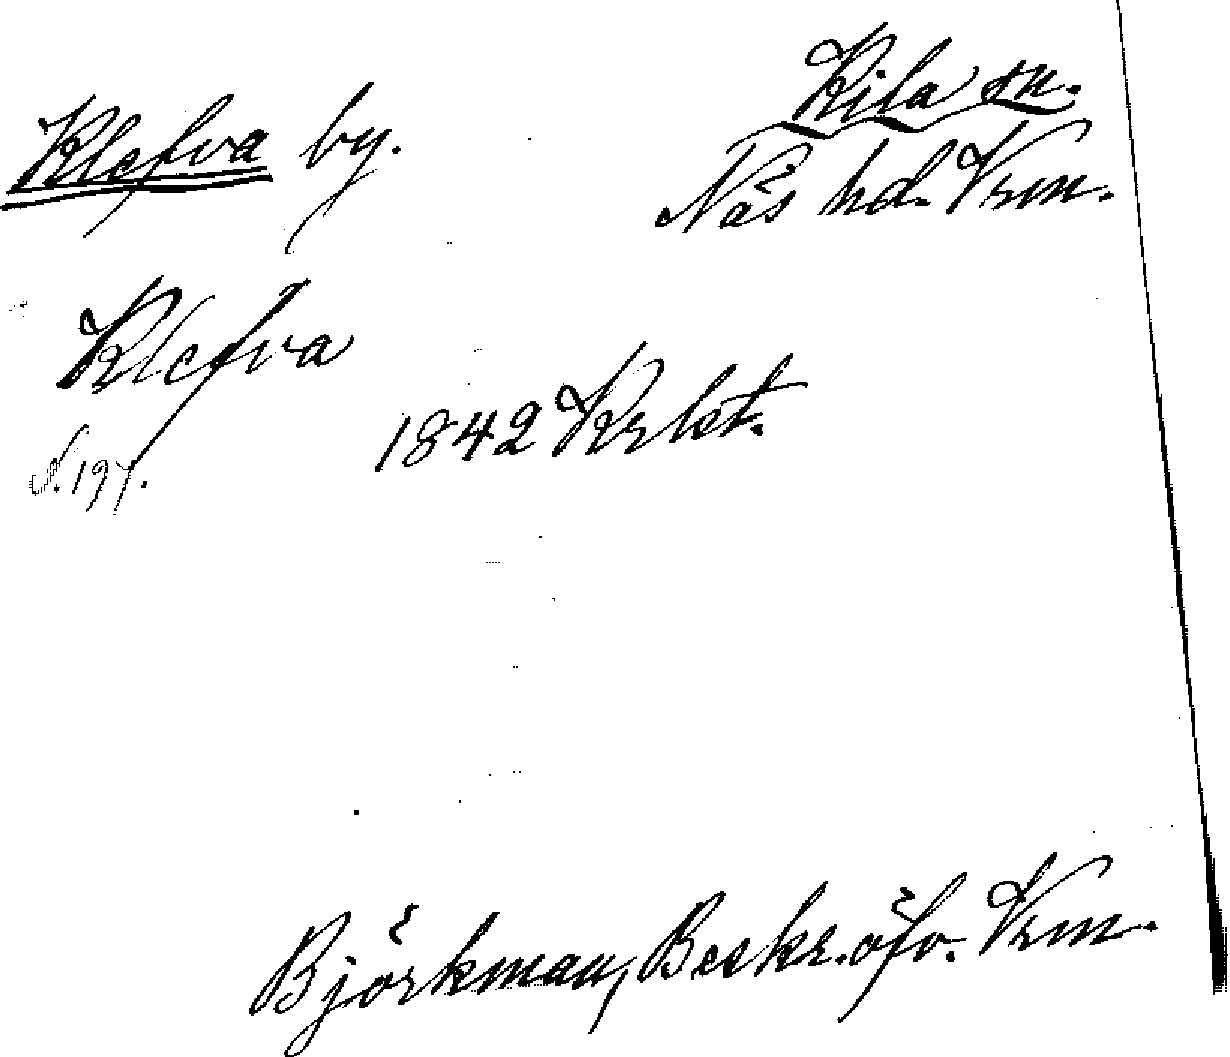 Klefva by.
Kila sn.
Näs hd. Vrm.
Klefva
1842 Krkt.
N. 197.
Björkman, Beskr. öfv. Vrm.